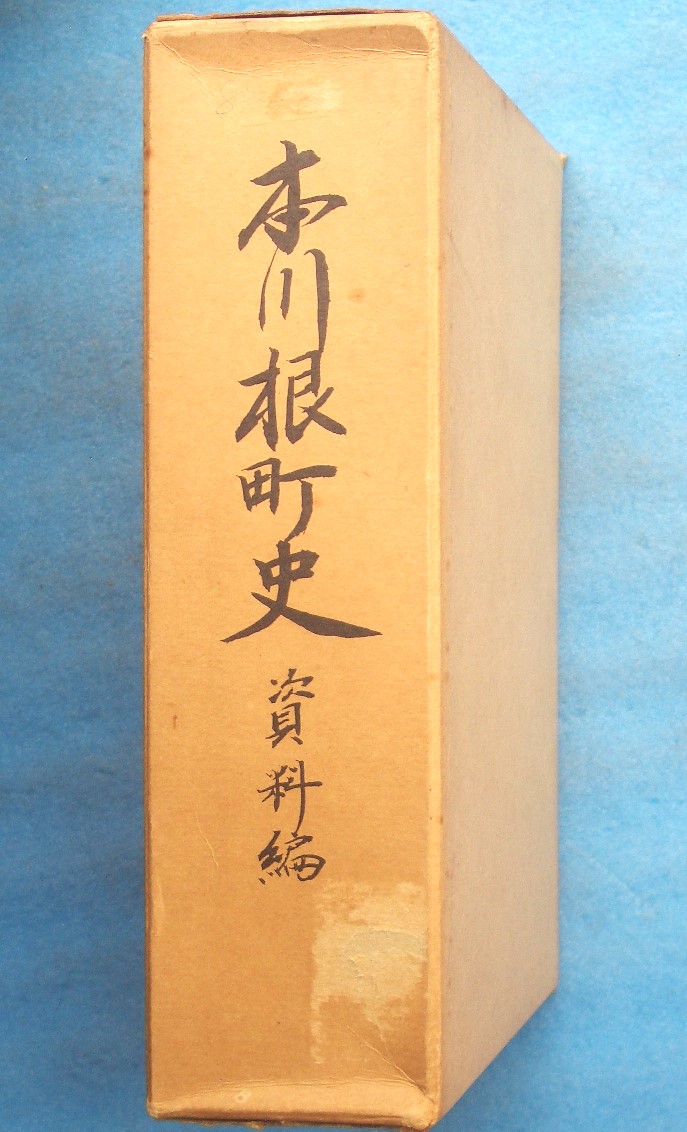 本川根町史 資料編